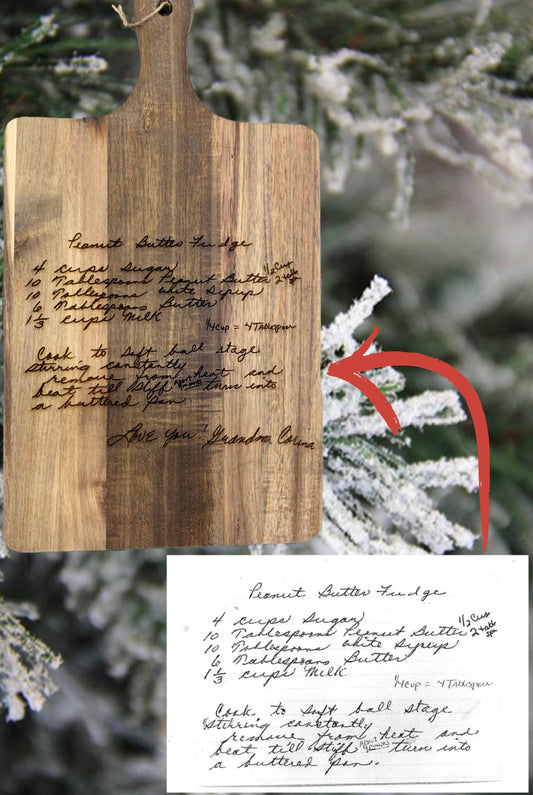 Peanut Butter Fudge
4 cups Sugar
10 Tablespoons Peanut Butter 1/2 Cup 2 tabl sp
10 Tablespoons white Syrup
6 Tablespoons Butter
1 1/3 cups Milk
1/4 cup = 4 Tablespoon
Cook to soft ball stage
stirring constantly
remove from heat and
beat till stiff turn into
a buttered pan
Love you! Grandma Corina
Peanut Butter Fudge
4 cups Sugar
10 Tablespoons Peanut Butter 1/2 Cup 2 tabl sp
10 Tablespoons white Syrup
6 Tablespoons Butter
1 1/3 cups Milk
1/4 cup = 4 Tablespoon
Cook to soft ball stage
stirring constantly
remove from heat and
beat till stiff turn into
a buttered pan.